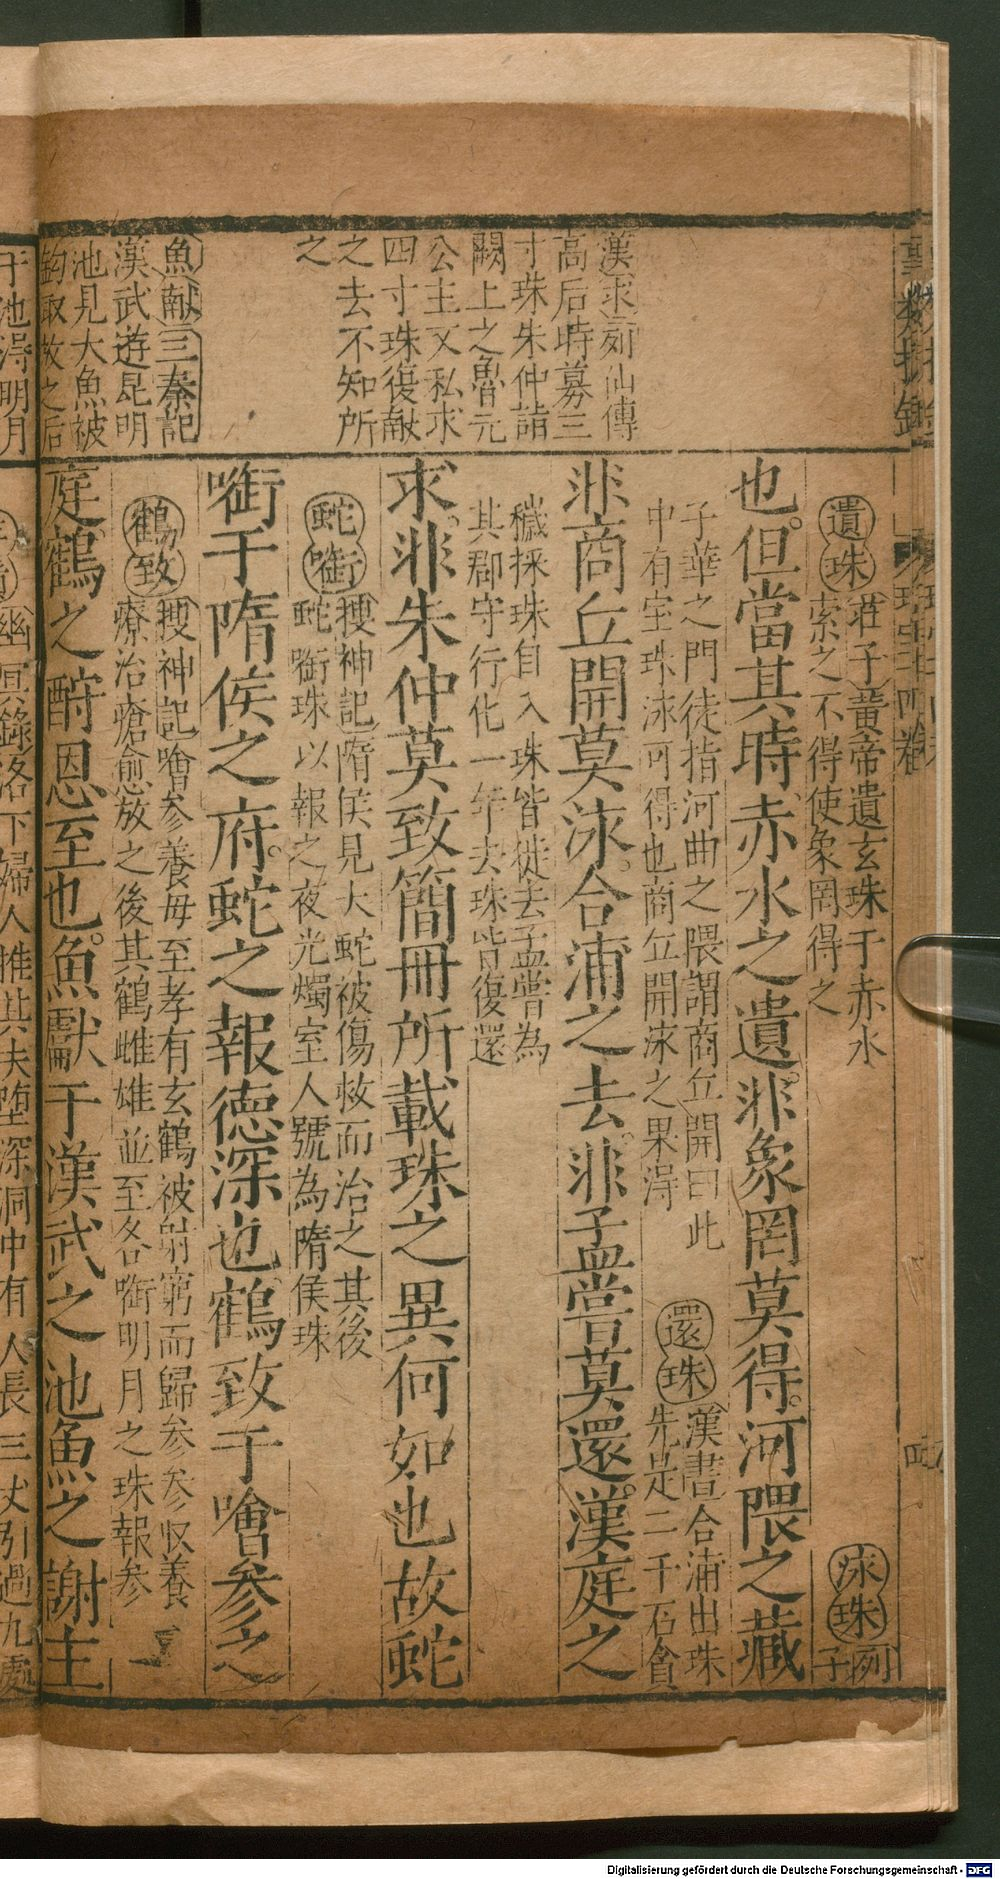 漢求列仙傳
高后時募三
寸珠朱仲詣
闕上之魯元
公主又私求
四寸珠復献
之去不知所
之
魚献三秦記
漢武逰昆明
池見大魚被
鈎取放之后
于池淂明月
遺珠
荘子黃帝遺玄珠于赤水
索之不得使象罔得之
泳珠
列
子
也但當其時赤水之遺非象罔莫得河隈之藏
子華之門徒指河曲之隈謂商丘開曰此
中有宝珠泳可得也商丘開泳之果淂
還珠
漢書合浦出珠
先是二千石貪
非商丘開莫泳合浦之去非孟嘗莫還漢庭之
穢採珠自入珠皆徙去孟嘗為
其郡守行化一年去珠皆復還
求非朱仲莫致簡冊所載珠之異何如也故蛇
蛇啣
搜神記隋侯見大蛇被傷救而治之其後
蛇啣珠以報之夜光燭室人號為隋侯珠
啣于隋侯之府蛇之報德深也鶴致于噲參之
鶴致
搜神記噲参養母至孝有玄鶴被射窮而歸参参収養
療治瘡愈放之後其鶴雌雄並至各啣明月之珠報参
庭鶴之酧恩至也魚獻于漢武之池魚之謝主
幽冥錄洛下婦人推其夫堕深洞中有人長三丈引過九處
Digitalisierung gefördert durch die Deutsche Forschungsgemeinschaft - DFG